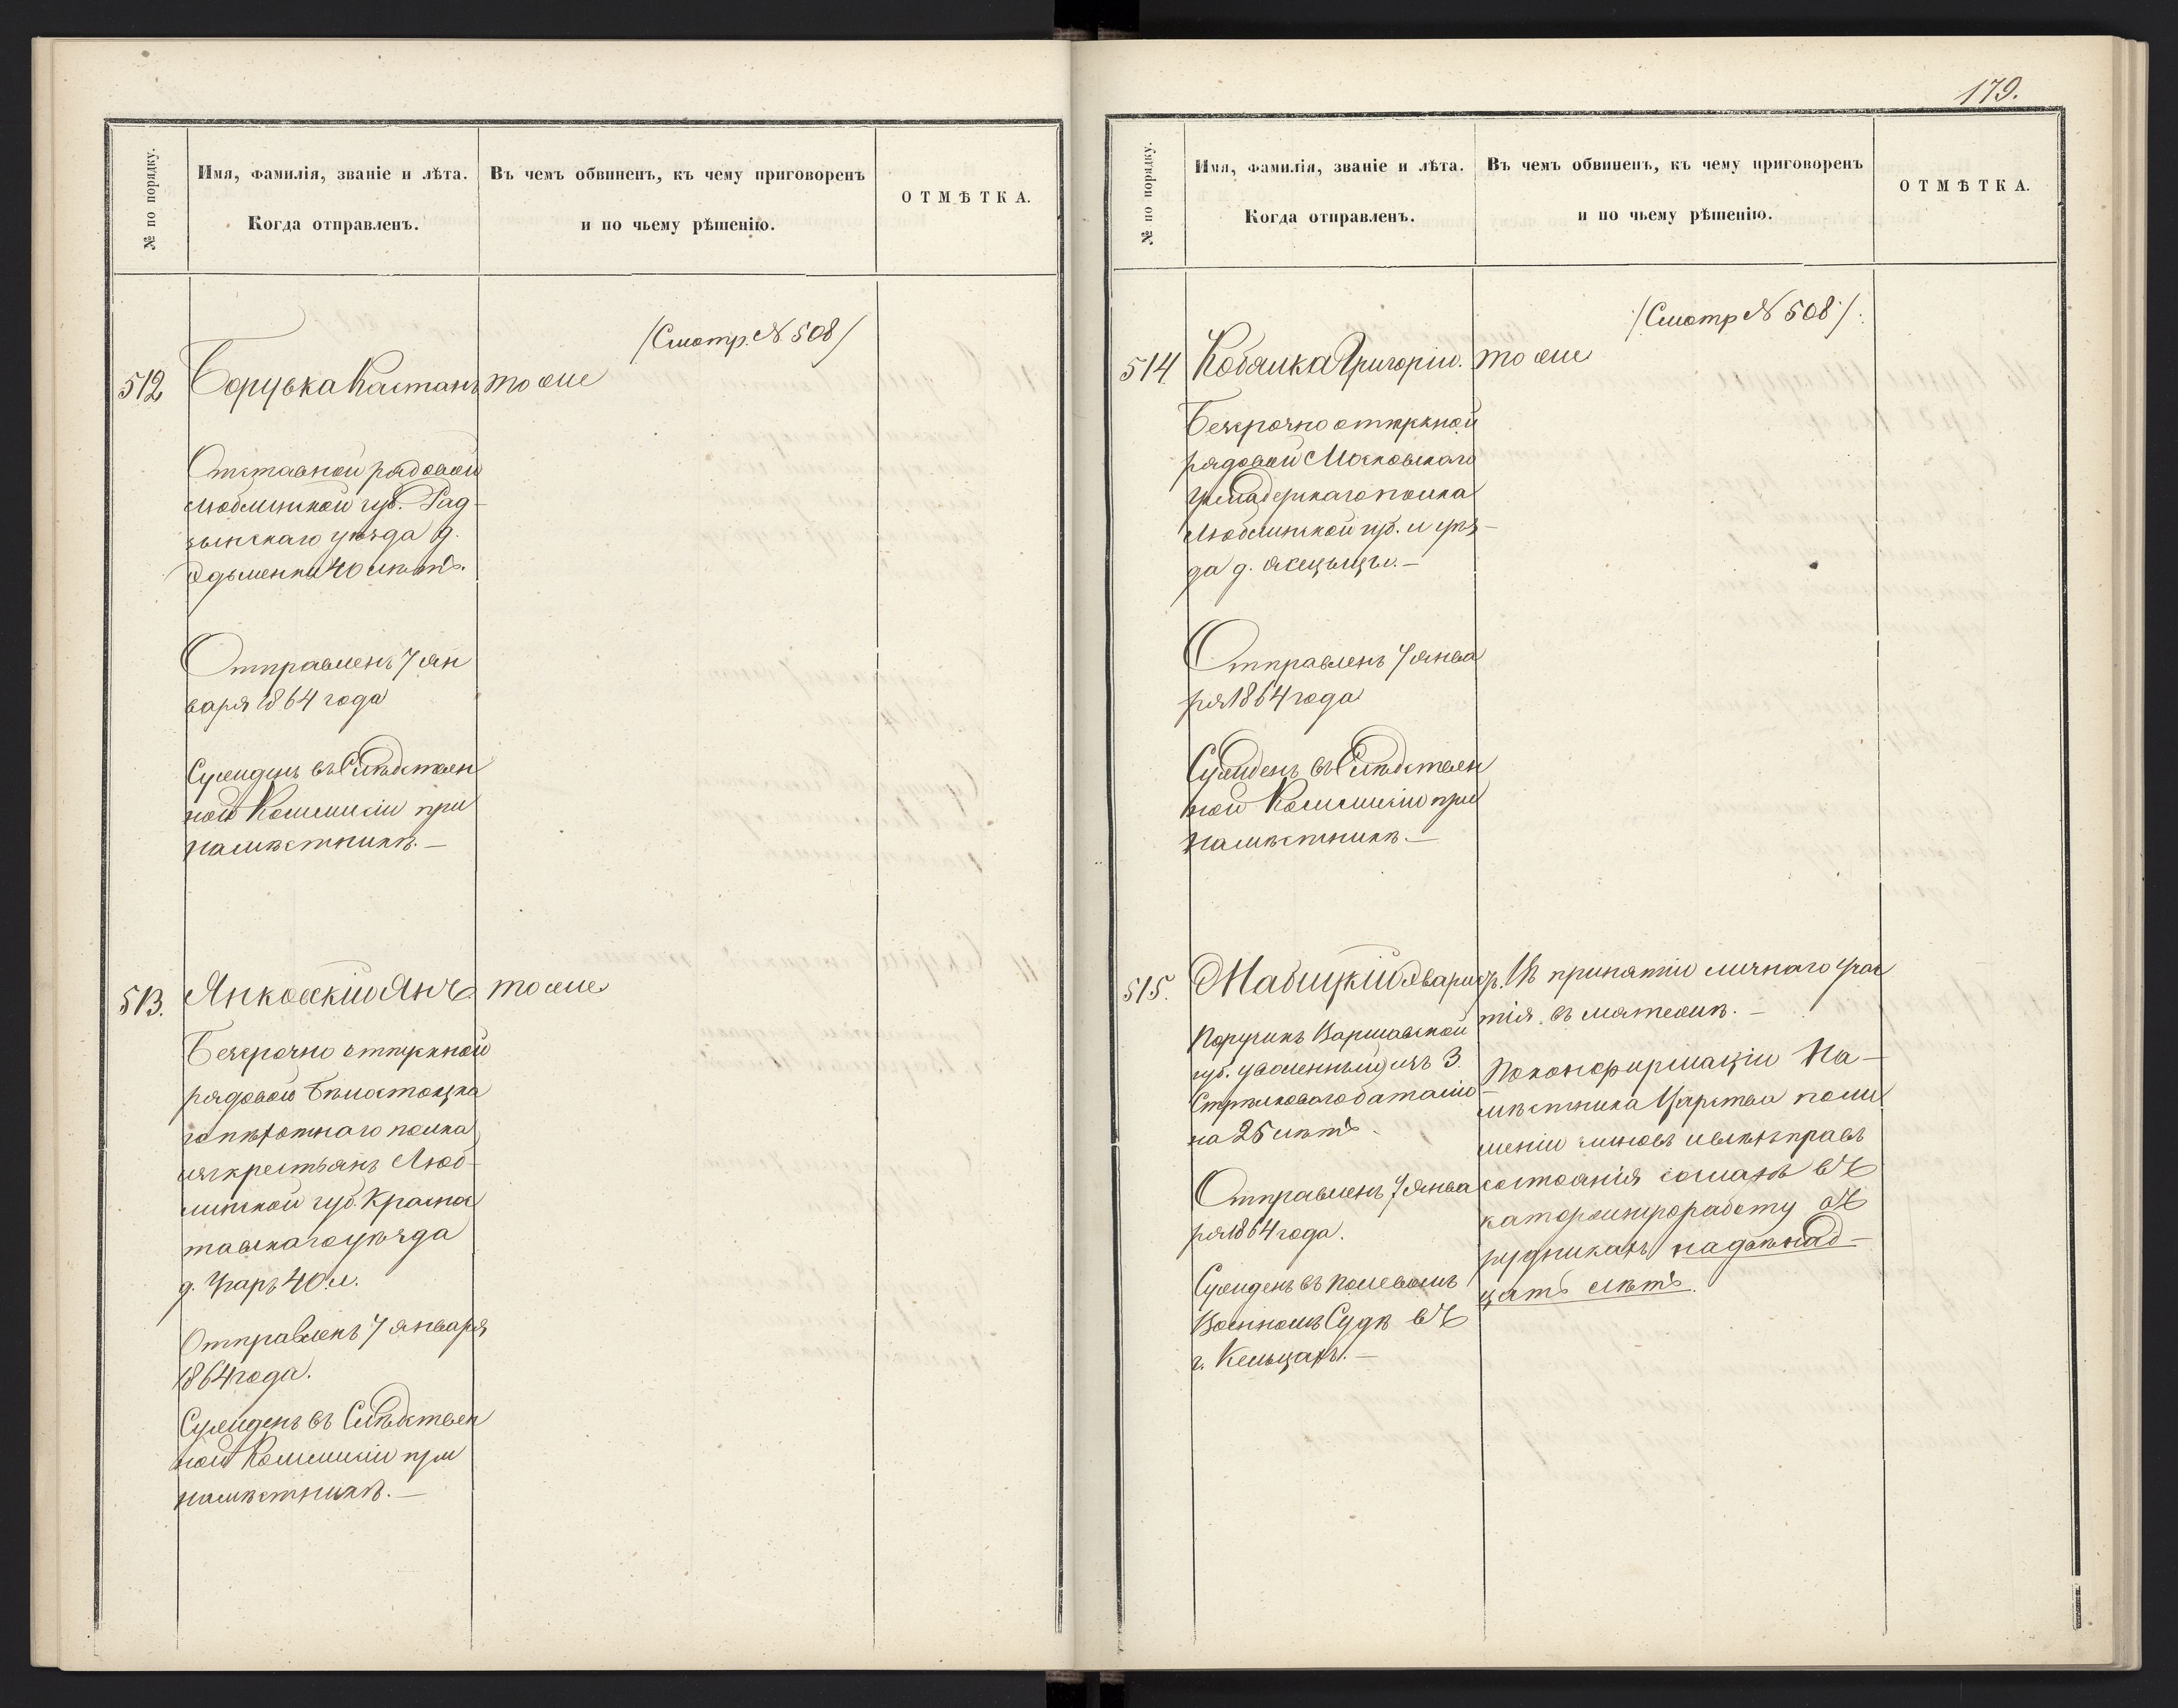 № по порядку.
Имя, фамилія, званіе и лѣта.
Когда отправленъ.
Въ чемъ обвиненъ, къ чему приговоренъ
и по чьему рѣшенію.
ОТМѢТКА.
/Смотр. № 508/
512 Борушка Каетанъ то же
Отставной рядовой
Люблинской губ. Рад-
зынскаго уѣзда д.
40 лѣтъ.
Отправленъ 7 Ян
варя 1864 года
Сужденъ въ Слѣдствен
ной Коммисіи при
Намѣстникѣ. —
513. Янковскій Янъ то же
Безсрочно отпускной
рядовой Бѣлостоцка
го пѣхотнаго полка
изъ крестьянъ Люб-
линской губ. Красно
тавскаго уѣзда
д. 40 л.
Отправленъ 7 января
1864 года.
Сужденъ въ Слѣдствен
ной Коммисіи при
Намѣстникѣ. —
179.
№ по порядку.
Имя, фамилія, званіе и лѣта.
Когда отправленъ.
Въ чемъ обвиненъ, къ чему приговоренъ
и по чьему рѣшенію.
ОТМѢТКА.
/Смотр № 508/.
514. Кобялка Григорій. то же
Безсрочно отпускной
рядовой Московскаго
Гренадерскаго полка
Люблинской губ. и уѣз-
да д.
Отправленъ 7 Янва
ря 1864 года
Сужденъ въ Слѣдствен
ной Коммисіи при
Намѣстникѣ. —
515.
Поручикъ Варшавской
губ. уволенный изъ 3
Стрѣлковаго баталіо
на 25 лѣтъ.
Отправленъ 7 Янва
ря 1864 года.
Сужденъ въ Полевомъ
Военномъ Судѣ въ
г. Кельцахъ. —
Въ принятіи личнаго учас
тія въ мятежѣ. —
По конфирмаціи На-
мѣстника Царства по лиш
шеніи чиновъ и всѣхъ правъ
состоянія сосланъ въ
каторжную работу въ
рудникахъ на двѣнад-
цать лѣтъ.